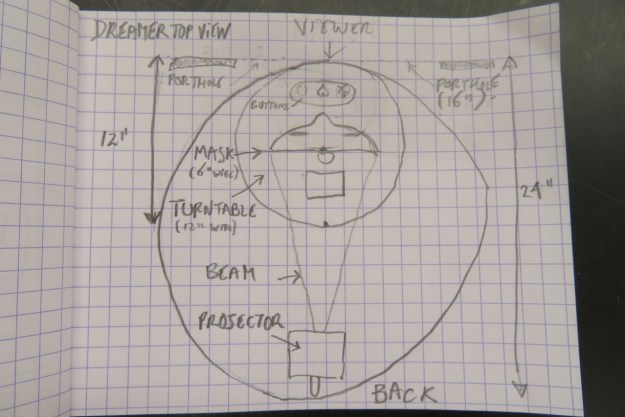 DREAMER TOP VIEW
VIEWER
PORTHOLE
PORTHOLE
(16")
BUTTONS
12"
MASK
(6" WIDE)
TURNTABLE
(12" WIDE)
24"
BEAM
PROJECTOR
BACK